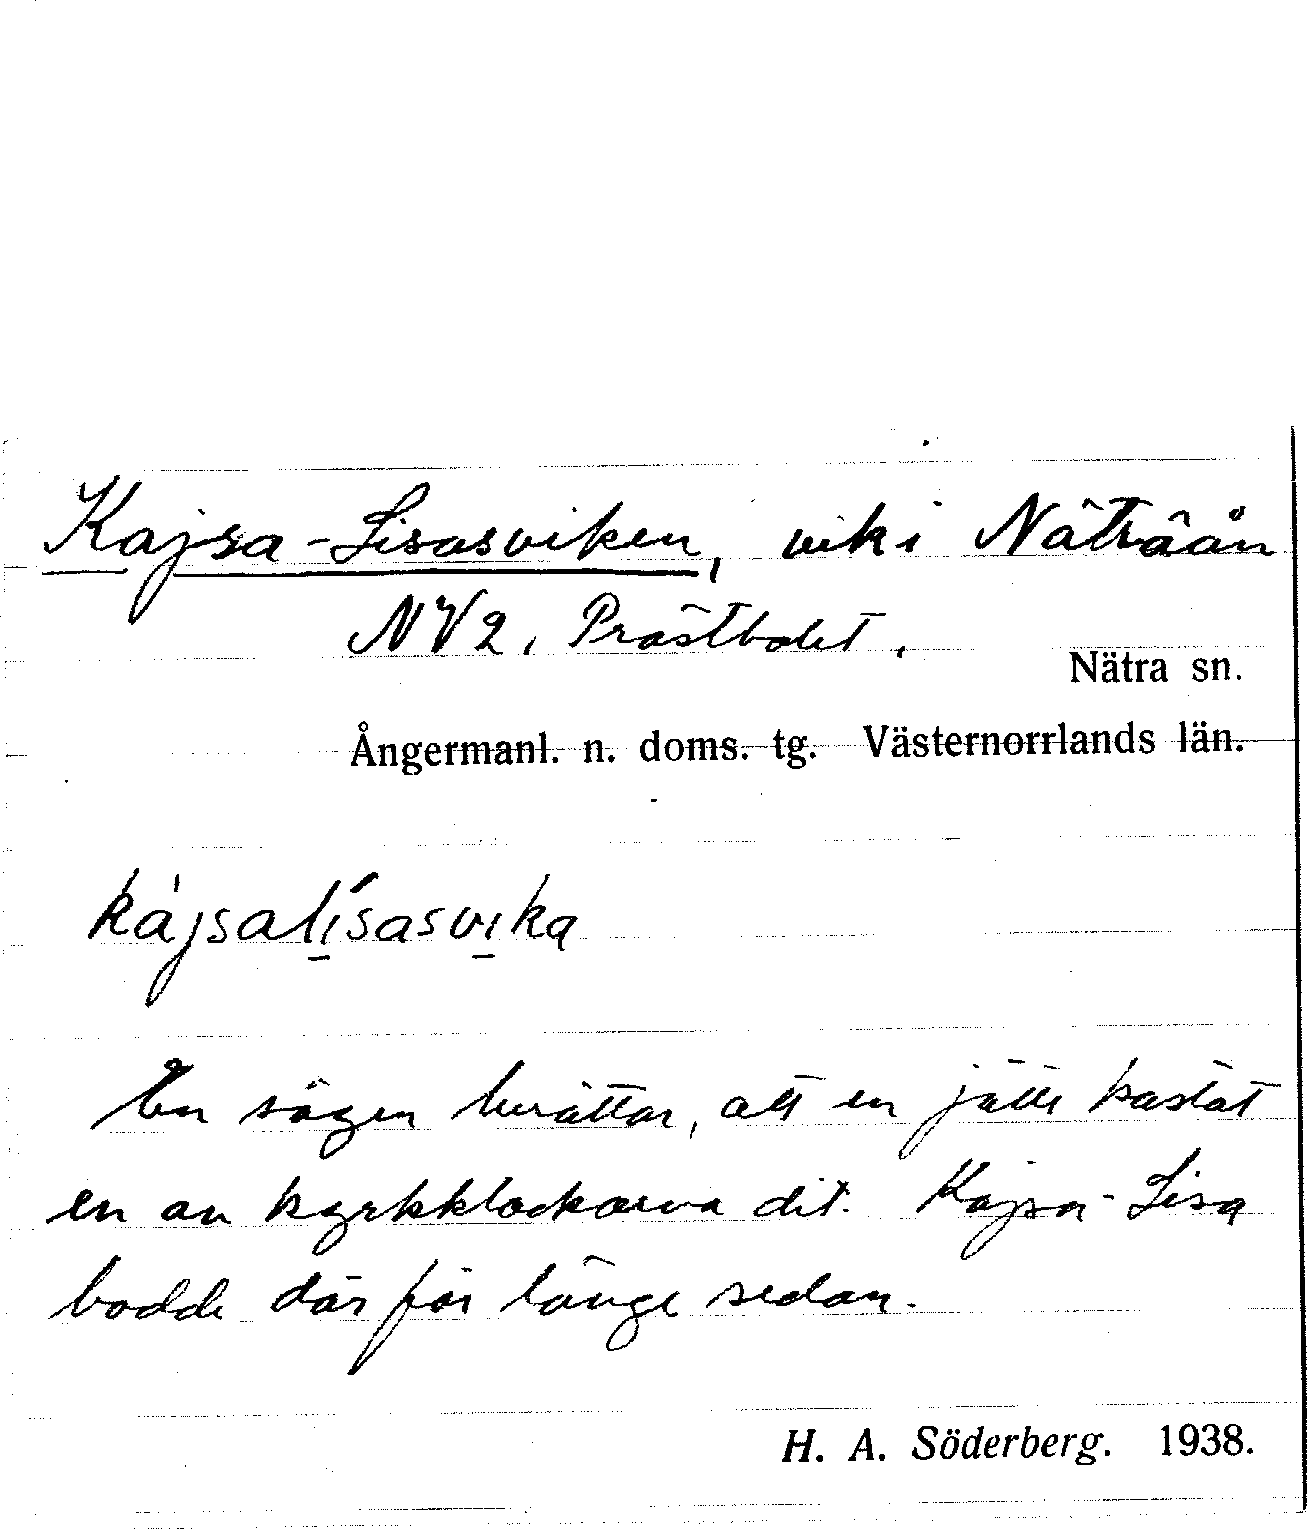 Kajsa-Lisasviken, vik i Nätraån
NV2, Prästbolet.
Nätra sn.
Ångermanl. n. doms. tg. Västernorrlands län.
kájsalísasvika
En sägen berättar, att en jätte kastat
en av kyrkklockorna dit. Kajsa-Lisa
bodde där för länge sedan.
H. A. Söderberg. 1938.